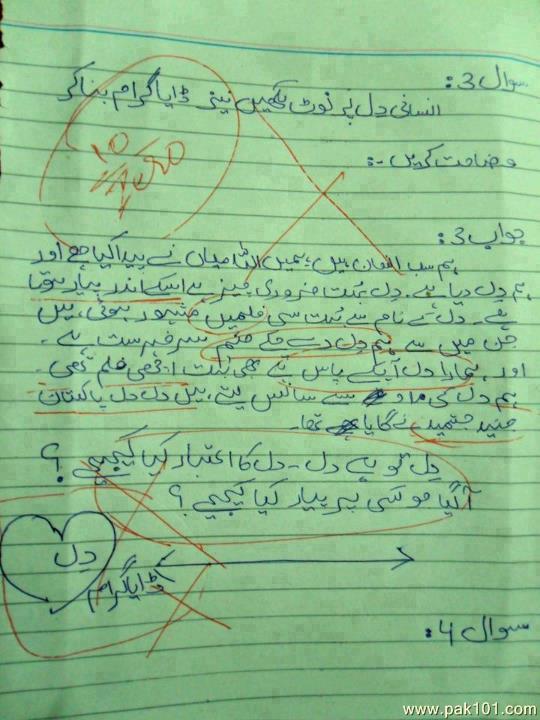 سوال 3:
انسانی دل پر نوٹ لکھیں نیز ڈایا گرام بنا کر
وضاحت کریں -:
10
Zero
جواب 3:
ہم سب انسان ہیں، ہمیں اللہ میاں نے پیدا کیا ہے اور
ہم دِل دیا ہے. دِل بہت ضروری چیز ہے اسکے اندر پیار ہوتا
ہے - دل کے نام سے بہت سی فلمیں مشہور ہوئی ہیں
جن میں سے ہم دِل دے چکے صنم سرفہرست ہے -
اور ہمارا دل آپکے پاس ہے بھی بہت اچھی فلم تھی -
ہم دل کی مدد سے سانس لیتے ہیں دل دل پاکستان
جنید جمشید نے گایا تھا -
دِل تو ہے دل - دل کا اعتبار کیا کیجیے ؟
آگیا جو کسی پہ پیار کیا کیجیے ؟
دِل
ڈایا گرام
سوال 4:
www.pak101.com